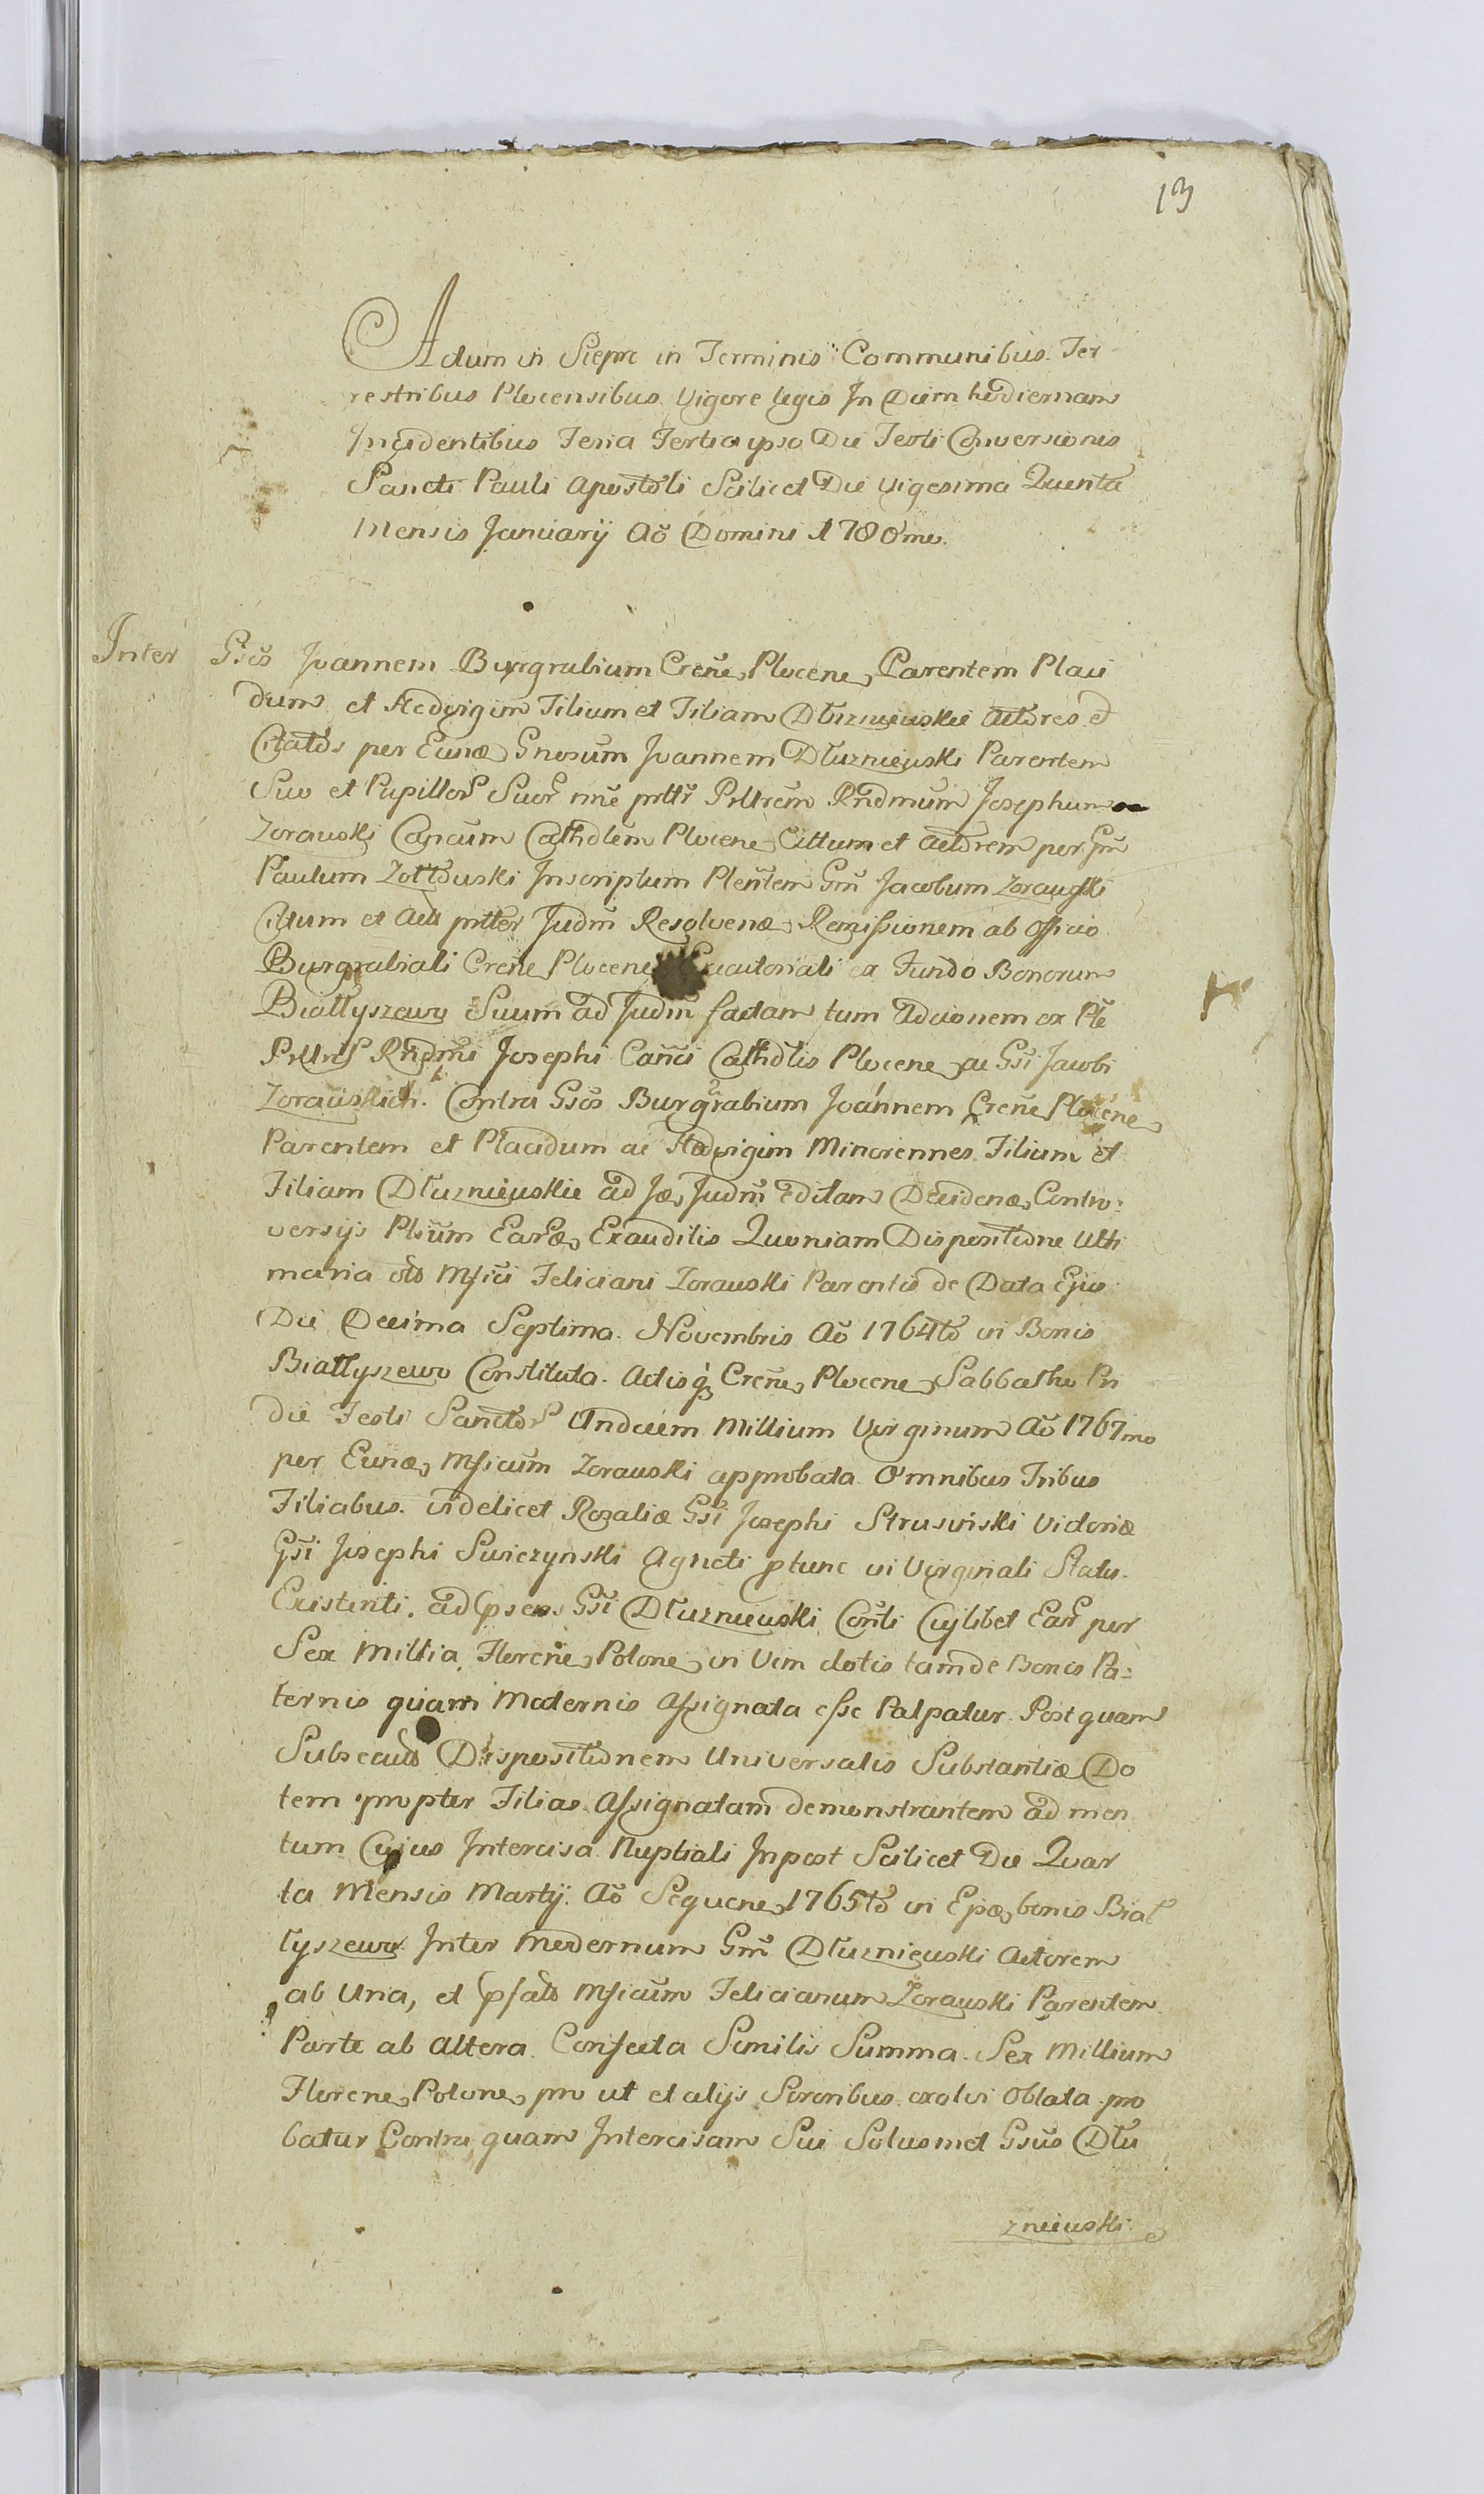 13
Actum in Sieprc in Terminis Communibus Ter
restribus Plocensibus Vigore legis In Diem hodiernam
Incidentibus Feria Tertia ipso Die Festi Conversionis
Sancti Pauli Apostoli Scilicet Die Vigesima Quinta
Mensis Januarij Aõ Domini 1780mo.
Inter Gsõs Joannem Burgrabium Creñe Plocene Parentem Placi
dum et Hedvigim Filium et Filiam Dłuzniewskie Actores et
Citatos per Eund Gnosum Joannem Dłuzniewski Parentem
Suo et Pupillor Suor nñe Rndmum Josephum
Zorawski Cancum Cathdlem Plocene Cittum et Actorem per Gm̃
Paulum Zołtowski Inscriptum Pleñtem Gm̃ Jacobum Zorawski
Citum et Act Judm̃ Resolvend Remissionem ab Officio
Burgrabiali Creñe Plocene ex Fundo Bonorum
Białłyszewo Suum ad Judm̃ factam tum Adcionem ex Pte
Rndm̃i Josephi Cañci Cathdlis Plocene ac Gsĩ Jacobi
Zorawskich. Contra Gsõs Burgrabium Joannem Creñe Plocene
Parentem et Placidum ac Hedvigim Minorennes Filium et
Filiam Dłuzniewskie ad Judm̃ editam Decidend Contro:
versijs Ptium Eard Exauditis Quoniam Dispositione Ulti
maria olo Mfici Feliciani Zorawski Parentis de Data Ejus
Die Decima Septima Novembris Aõ 1764to in Bonis
Białłyszewo Constituta. Actisq Creñe Plocene Sabbatho Pri
die Festi Sanctor Undecim Millium Virginum Aõ 1767mo
per Eund Mficum Zorawski approbata Omnibus Tribus
Filiabus videlicet Rozaliæ Gsĩ Josephi Strusinski Victoriæ
Gsĩ Josephi Swiczynski Agneti ptunc in Virginali Statu
Existenti, ad psens Gsĩ Dłuzniewski Conti Cujlibet Ear per
Sex Millia Florene Polone in Vim dotis tam de Bonis Pa:
ternis quam Maternis Assignata esse Palpatur. Postquam
Subsecuto Dispositionem Universalis Substantiæ Do
tem propter Filias Assignatam demonstrantem ad men
tum Cujus Intercisa Nuptiali Inpost Scilicet Die Quar
ta Mensis Martij Aõ Sequene 1765to in bonis Biał
łyszewo Inter Modernum Gm̃ Dłuzniewski Actorem
ab Una, et psato Mficum Felicianum Zorawski Parentem
Parte ab Altera Confecta Similis Summa Sex Millium
Florene Polone pro ut et alijs Sororibus exolvi Oblata pro
batur Contra quam Intercisam Sui Solusmet Gsũs Dłu
zniewski